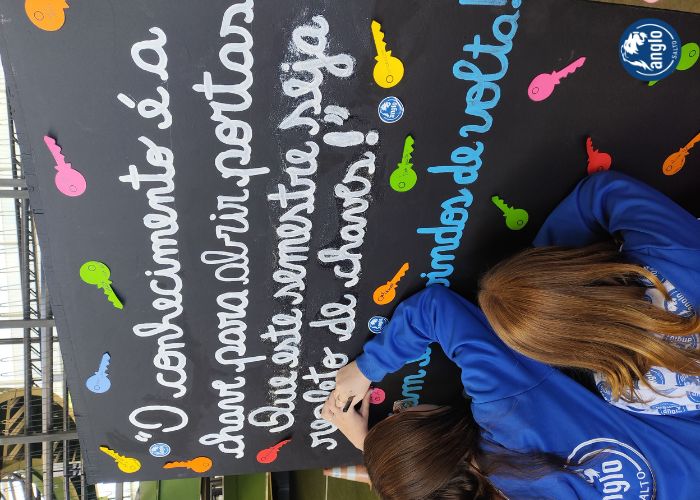 "O conhecimento é a
chave para abrir portas.
Que este semestre seja
repleto de chaves!"
vindos de volta!
anglo
SALTO
anglo
anglo
SALTO